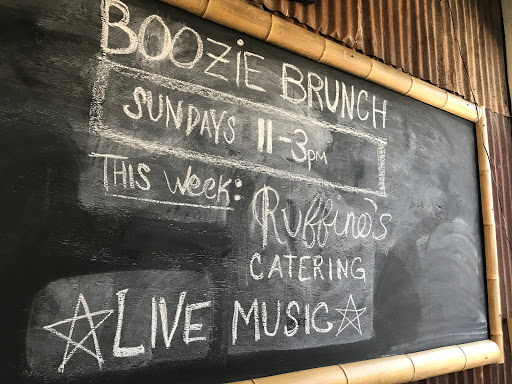 BOOZIE BRUNCH
SUNDAYS 11-3pm
THIS Week:
Ruffino's
CATERING
LIVE MUSIC